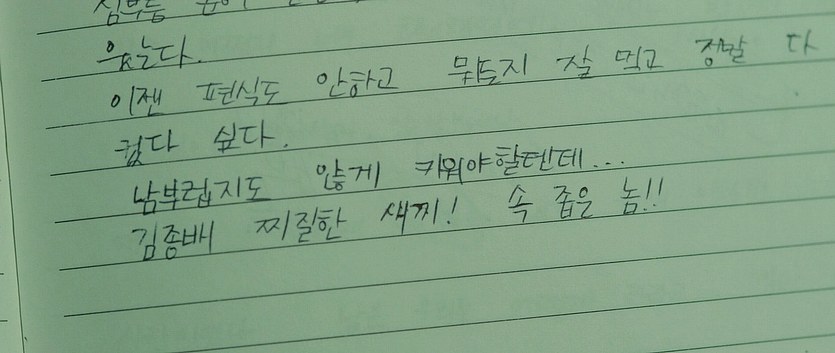 심부름
웃는다.
이젠 편식도 안하고 뭐든지 잘 먹고 정말 다
컸다 싶다.
남부럽지도 않게 키워야할텐데...
김종배 찌질한 새끼! 속 좁은 놈!!